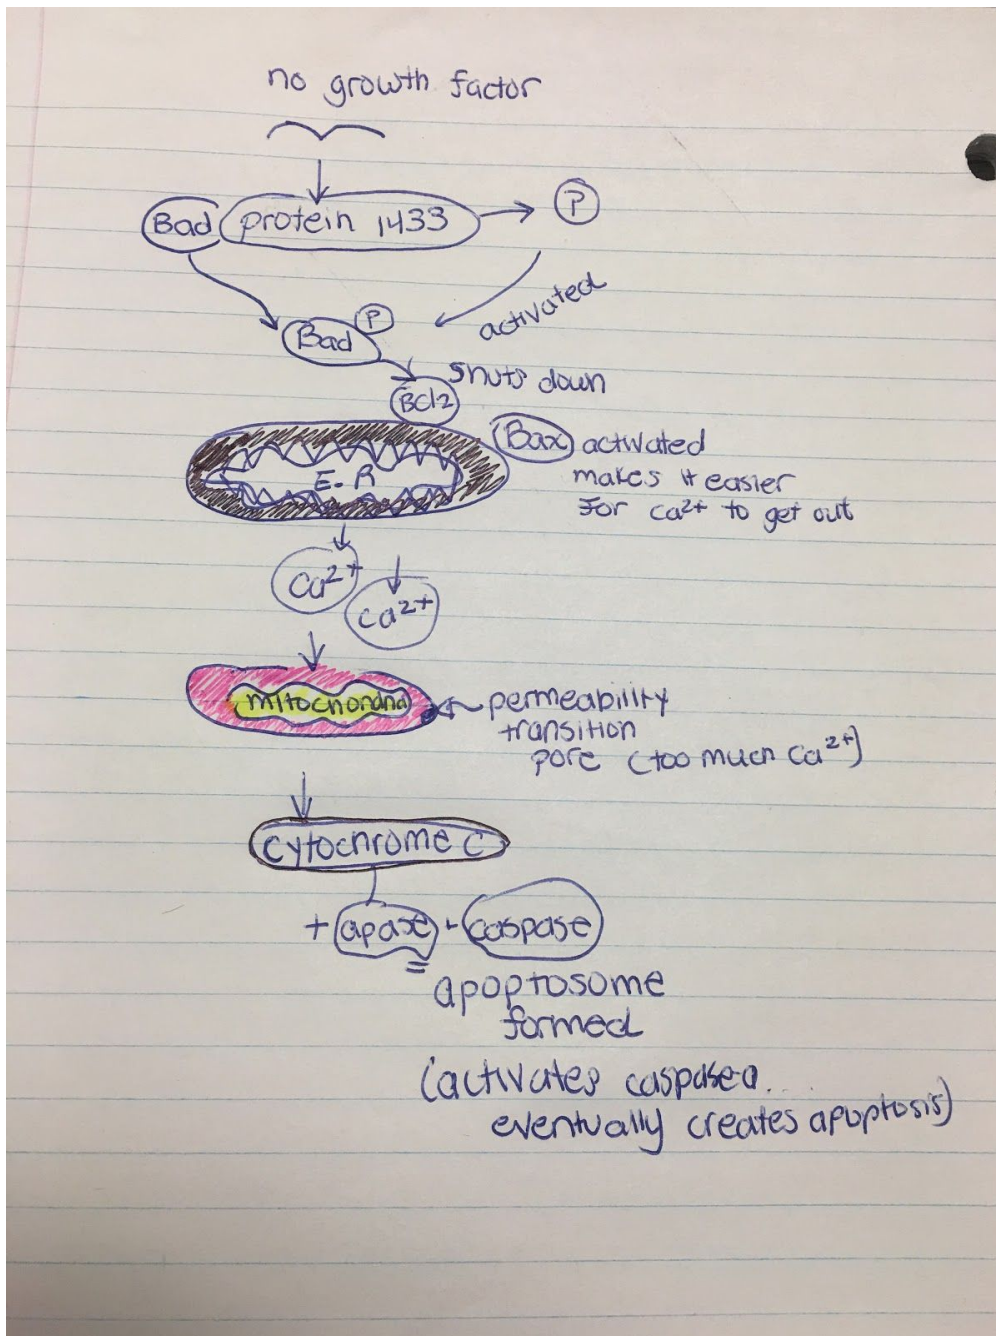 no growth factor
Bad protein 1433 P
activated
Bad P
shuts down
Bcl2
Bax activated
makes it easier
for Ca2+ to get out
E.R
Ca2+
Ca2+
mitochondria
permeability
transition
pore (too much Ca2+)
cytochrome c
+ apase + caspase
=
apoptosome
formed
(activates caspase a...
eventually creates apoptosis)